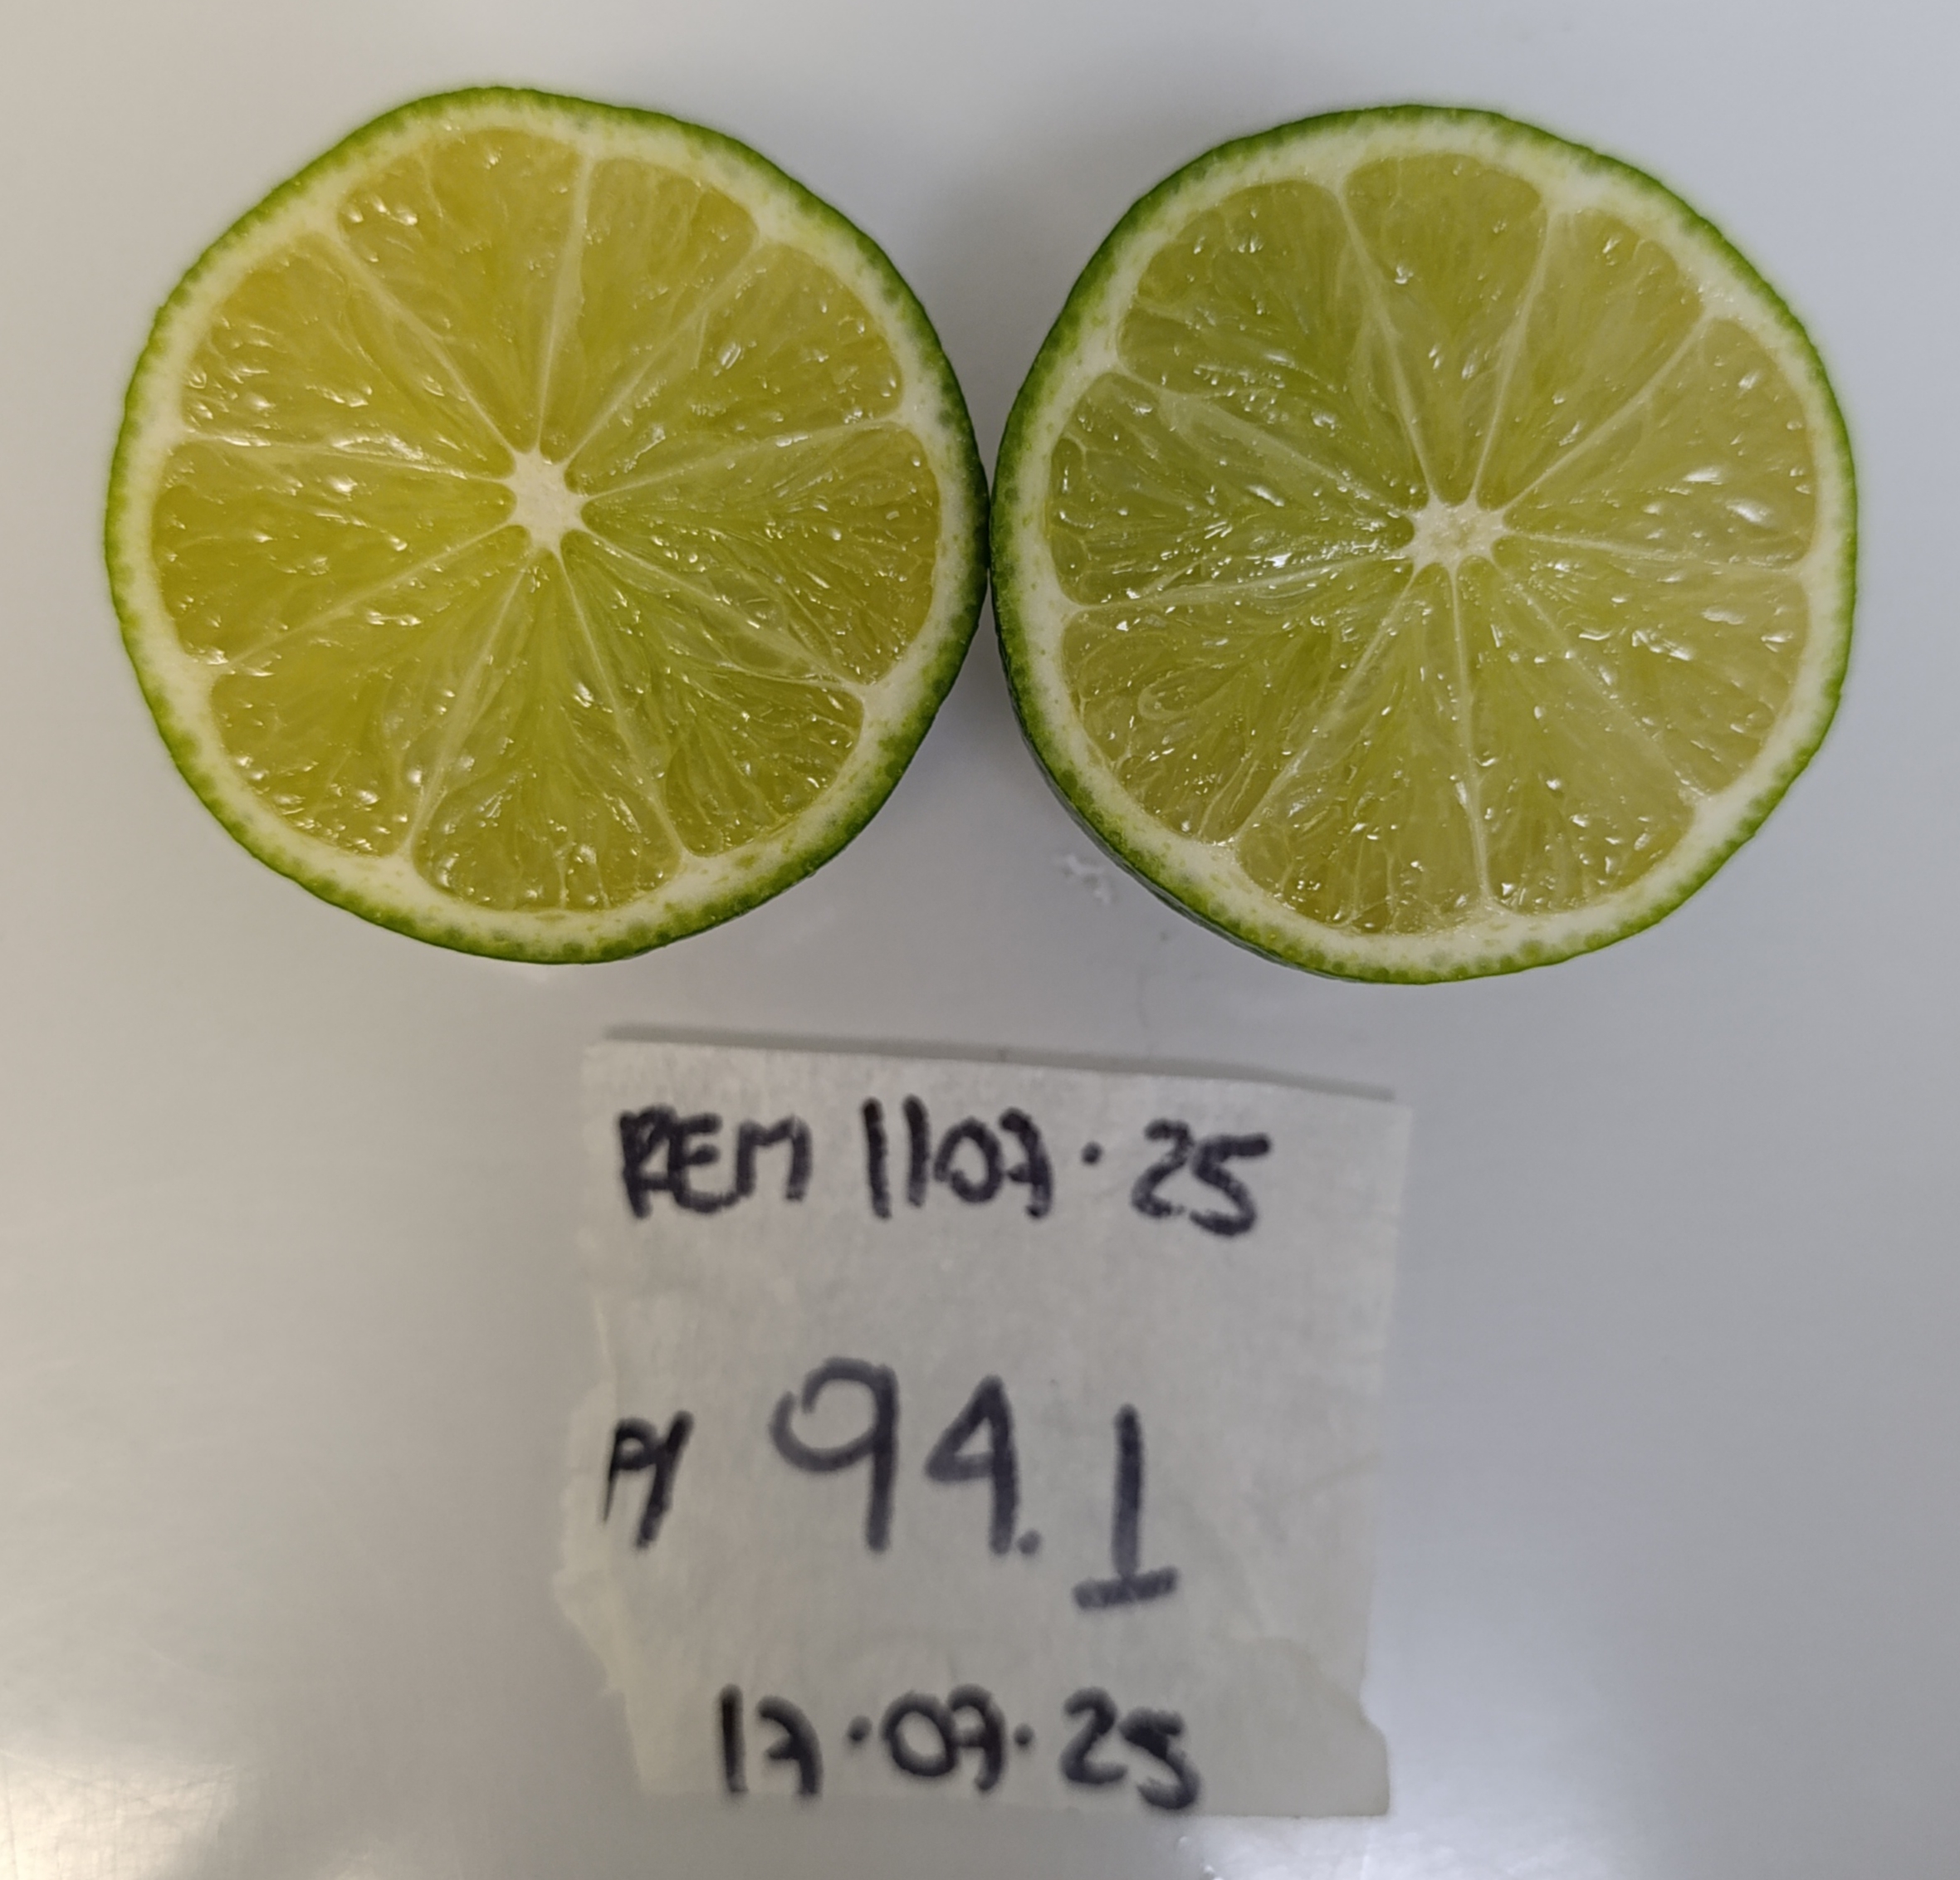 REM 1107·25
P/ 94.1
17·07·25